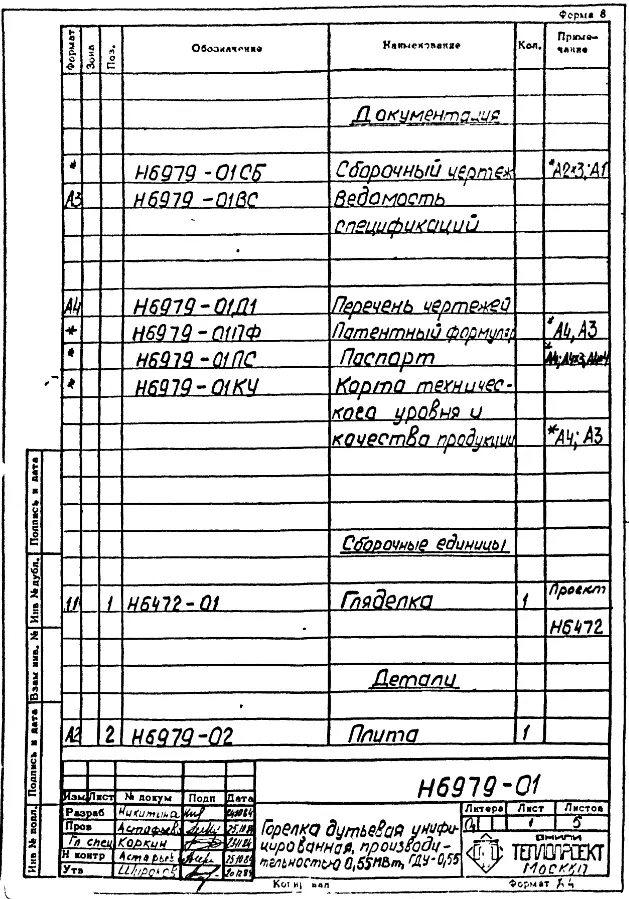 Форма 8
Формат Зона Поз. Обозначение Наименование Кол. Примечание
Документация
* Н6979-01СБ Сборочный чертеж *А2х3; А1
А3 Н6979-01ВС Ведомость
спецификаций
А4 Н6979-01Д1 Перечень чертежей
* Н6979-01ПФ Патентный формуляр *А4, А3
* Н6979-01ПС Паспорт
* Н6979-01КУ Карта техничес-
кого уровня и
качества продукции *А4; А3
Сборочные единицы
11 1 Н6472-01 Гляделка 1 Проект
Н6472
Детали
А2 2 Н6979-02 Плита 1
Подпись и дата
Инв № дубл.
Взам инв. №
Подпись и дата
Инв № подл.
Н6979-01
Изм Лист № докум Подп Дата
Разраб Никитина
Пров
Гл спец Коркин
Н контр
Утв
Горелка дутьевая унифи-
цированная, производи-
тельностью 0,55МВт, ГДУ-0,55
Литера Лист Листов
1 5
ВНИПИ
ТЕПЛОПРОЕКТ
Москва
Формат А4